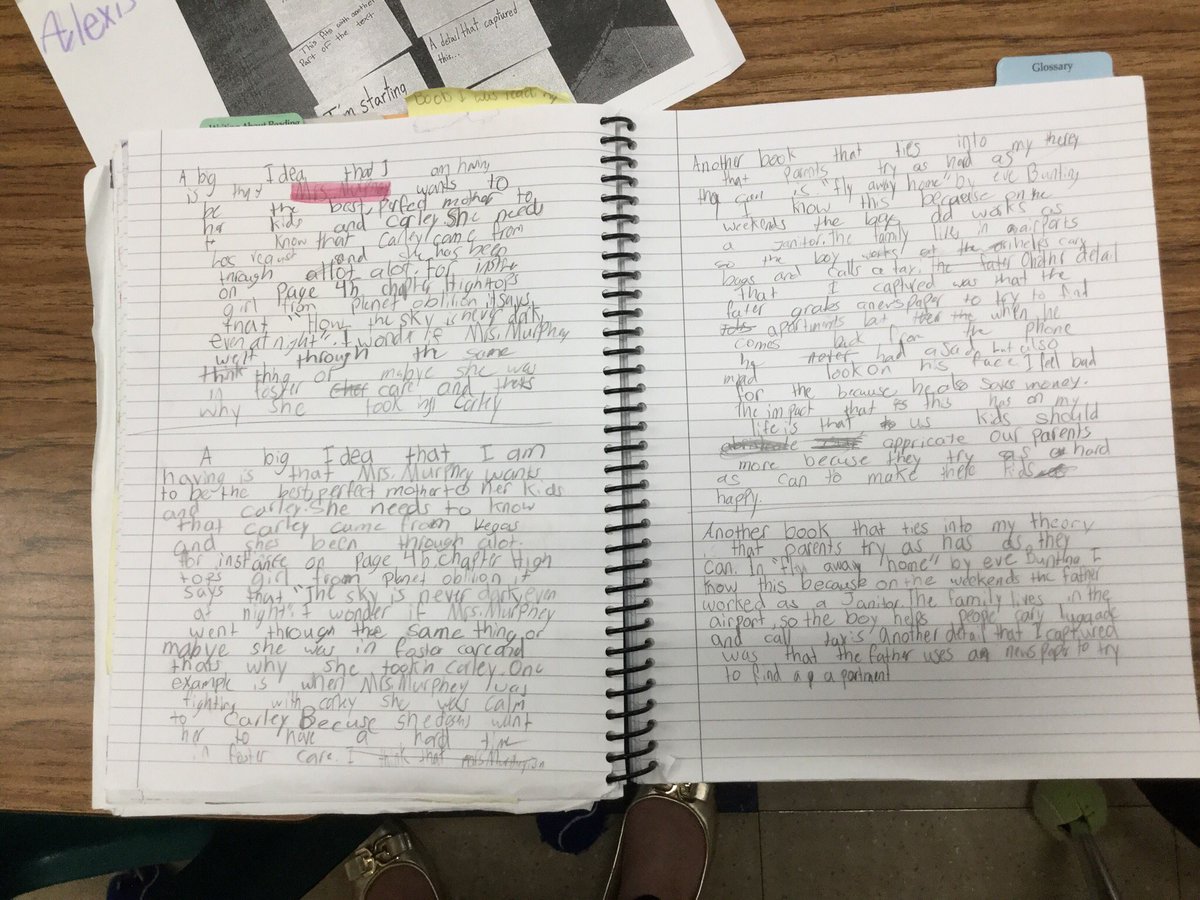 Alexis
This fits with another
part of the text
A detail that captured
this...
I'm starting
Book I was reading
Writing About Reading
Glossary
A big Idea that I am having
is that Mrs. Murphy wants to
be the best, perfect mother to
her kids and Carley. She needs
to know that Carley came from
and she has been
through allot alot. for
on Page 46 chapter Hightops
girl from planet oblilion it says
that "How the sky is never dark
even at night". I wonder if Mrs. Murphey
went through the same
think thing or mabye she was
in foster care and thats
why she took in Carley
A big Idea that I am
having is that Mrs. Murphey wants
to be the best, perfect mother to her kids
and carley. She needs to know
that Carley came from Vegas
and shes been through alot.
for instance on page 46 chapter High
tops girl from planet oblion it
says that "The sky is never dark even
at night". I wonder if Mrs. Murphey
went through the same thing or
mabye she was in foster care and
thats why she took in carley. One
example is when Mrs. Murphey was
fighting with carley she was calm
to Carley Becuse she dosnt want
her to have a hard time
in foster care. I think that
Another book that ties into my theroy
that Parents try as had as
they can is "fly away home" by eve Bunting
I know this because on the
weekends the works as
a Janitor. The family lives in airports
so the boy works at the helps cary
bags and calls a taxi. The fater Onther detail
that I captured was that the
fater grabs a newspaper to try to find
apartments but when he
comes back from the phone
he never had a sad but also
mad look on his face. I fell bad
for the because he also saves money.
The impact that is this has on my
life is that to us kids should
appricate our parents
more becuse they try as hard
as can to make there kids
happy.
Another book that ties into my theory
that parents try as has as they
can. In "fly away home" by eve Bunting I
know this because on the weekends the father
worked as a Janitor. The family lives in the
airport, so the boy helps people cary luggade
and call taxis. Another detail that I captured
was that the father uses an news paper to try
to find a apartment